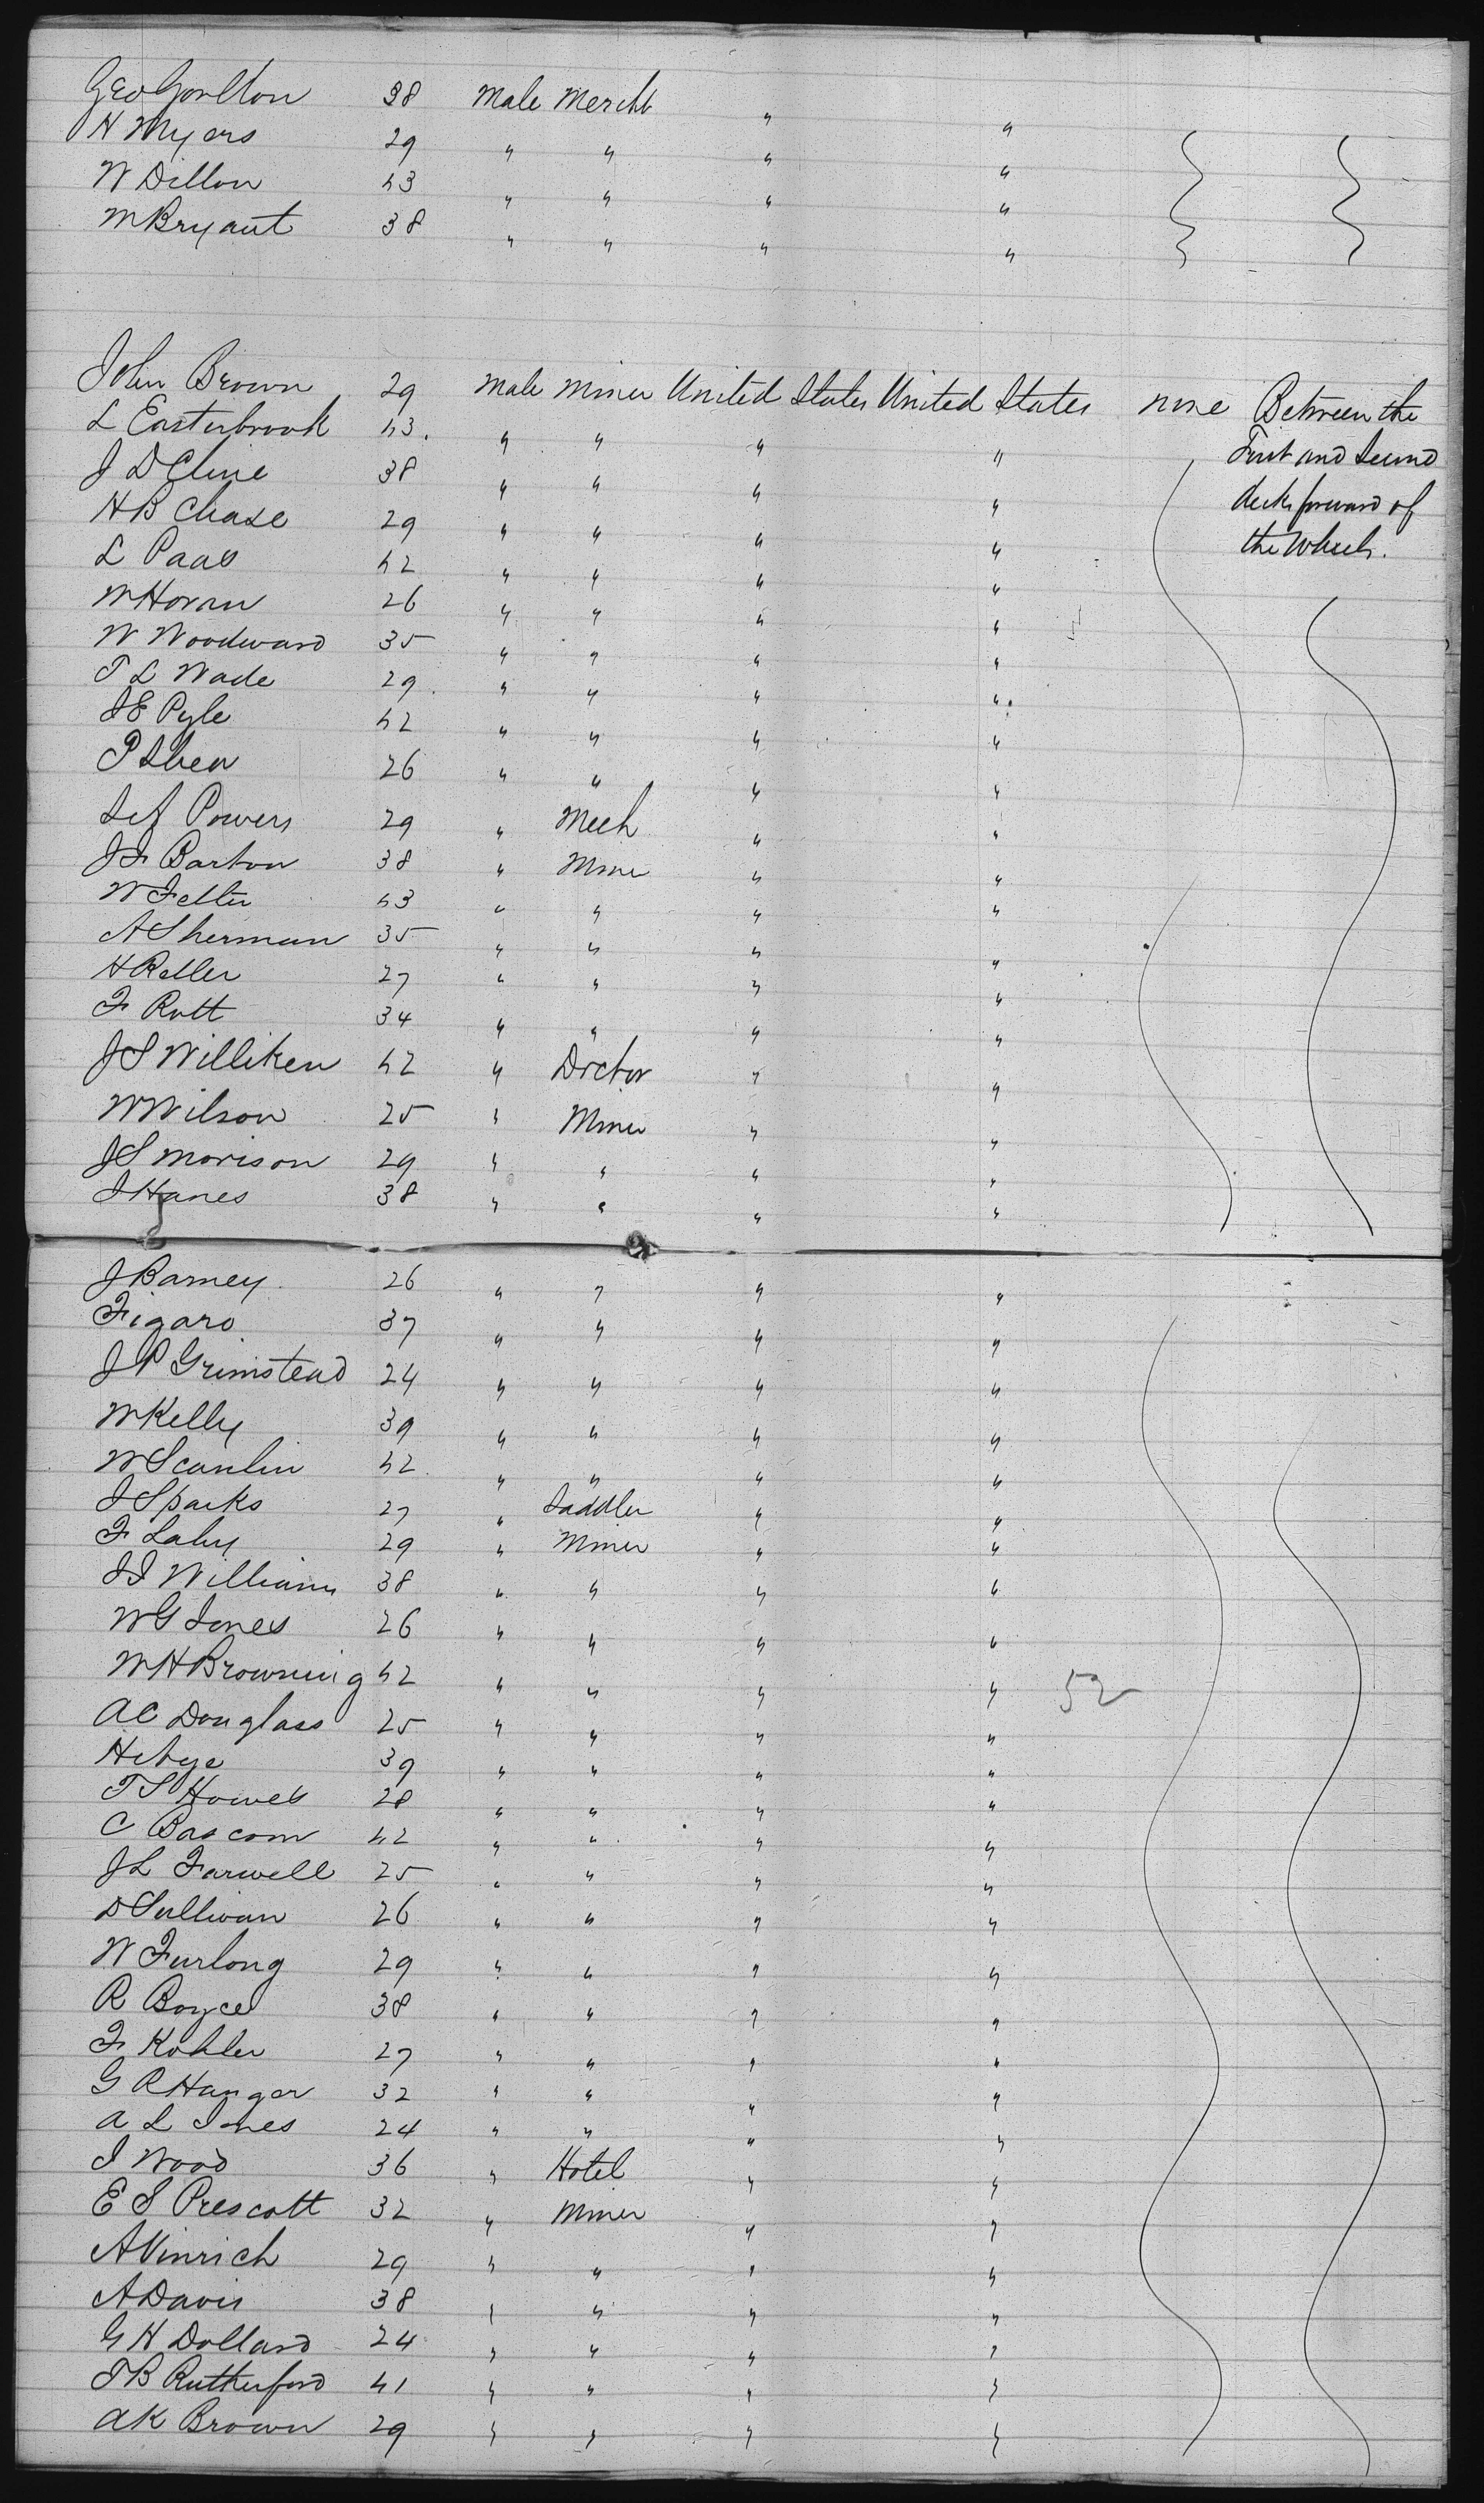 Geo Goulton 38 Male Mercht " "
H Myers 29 " " " "
W Dillon 43 " " " "
M Bryant 38 " " " "
John Brown 29 Male Miner United States United States none Between the
L Easterbrook 43. " " " " First and Second
J D Cline 38 " " " " deck forward of
H B Chase 29 " " " " the Wheels.
L Paas 42 " " " "
W Horan 26 " " " "
W Woodward 35 " " " "
T L Wade 29 " " " "
J E Pyle 42 " " " "
P Shea 26 " " " "
Powers 29 " Mech " "
J F Barton 38 " Miner " "
W Felter 43 " " " "
A Sherman 35 " " " "
H Reller 27 " " " "
F Rott 34 " " " "
J S Williken 42 " Doctor " "
W Wilson 25 " Miner " "
J S Morison 29 " " " "
J Hanes 38 " " " "
J Barney 26 " " " "
Figaro 37 " " " "
J P Grimstead 24 " " " "
W Kelly 39 " " " "
W Scanlin 42 " " " "
J Sparks 27 " Saddler " "
F 29 " Miner " "
J J Williams 38 " " " "
W G Jones 26 " " " "
W H Browning 42 " " " " 52
A C Douglass 25 " " " "
39 " " " "
T S Howels 28 " " " "
C Bascom 42 " " " "
J L Farwell 25 " " " "
D Sullivan 26 " " " "
W Furlong 29 " " " "
R Boyce 38 " " " "
F Kohler 27 " " " "
G R Hanger 32 " " " "
A L Jones 24 " " " "
J Wood 36 " Hotel " "
E S Prescott 32 " Miner " "
A Vinrich 29 " " " "
A Davis 38 " " " "
G H Dollard 24 " " " "
T B Rutherford 41 " " " "
A K Brown 29 " " " "